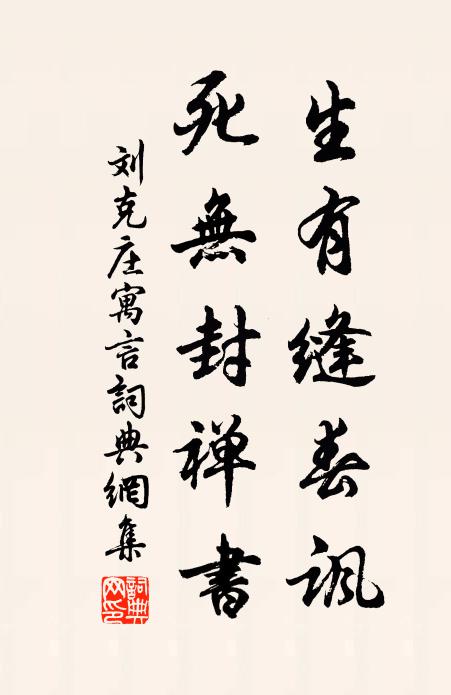 生有縫春諷
死無封禅書
刘克庄寓言詞典網集
詞典
网印